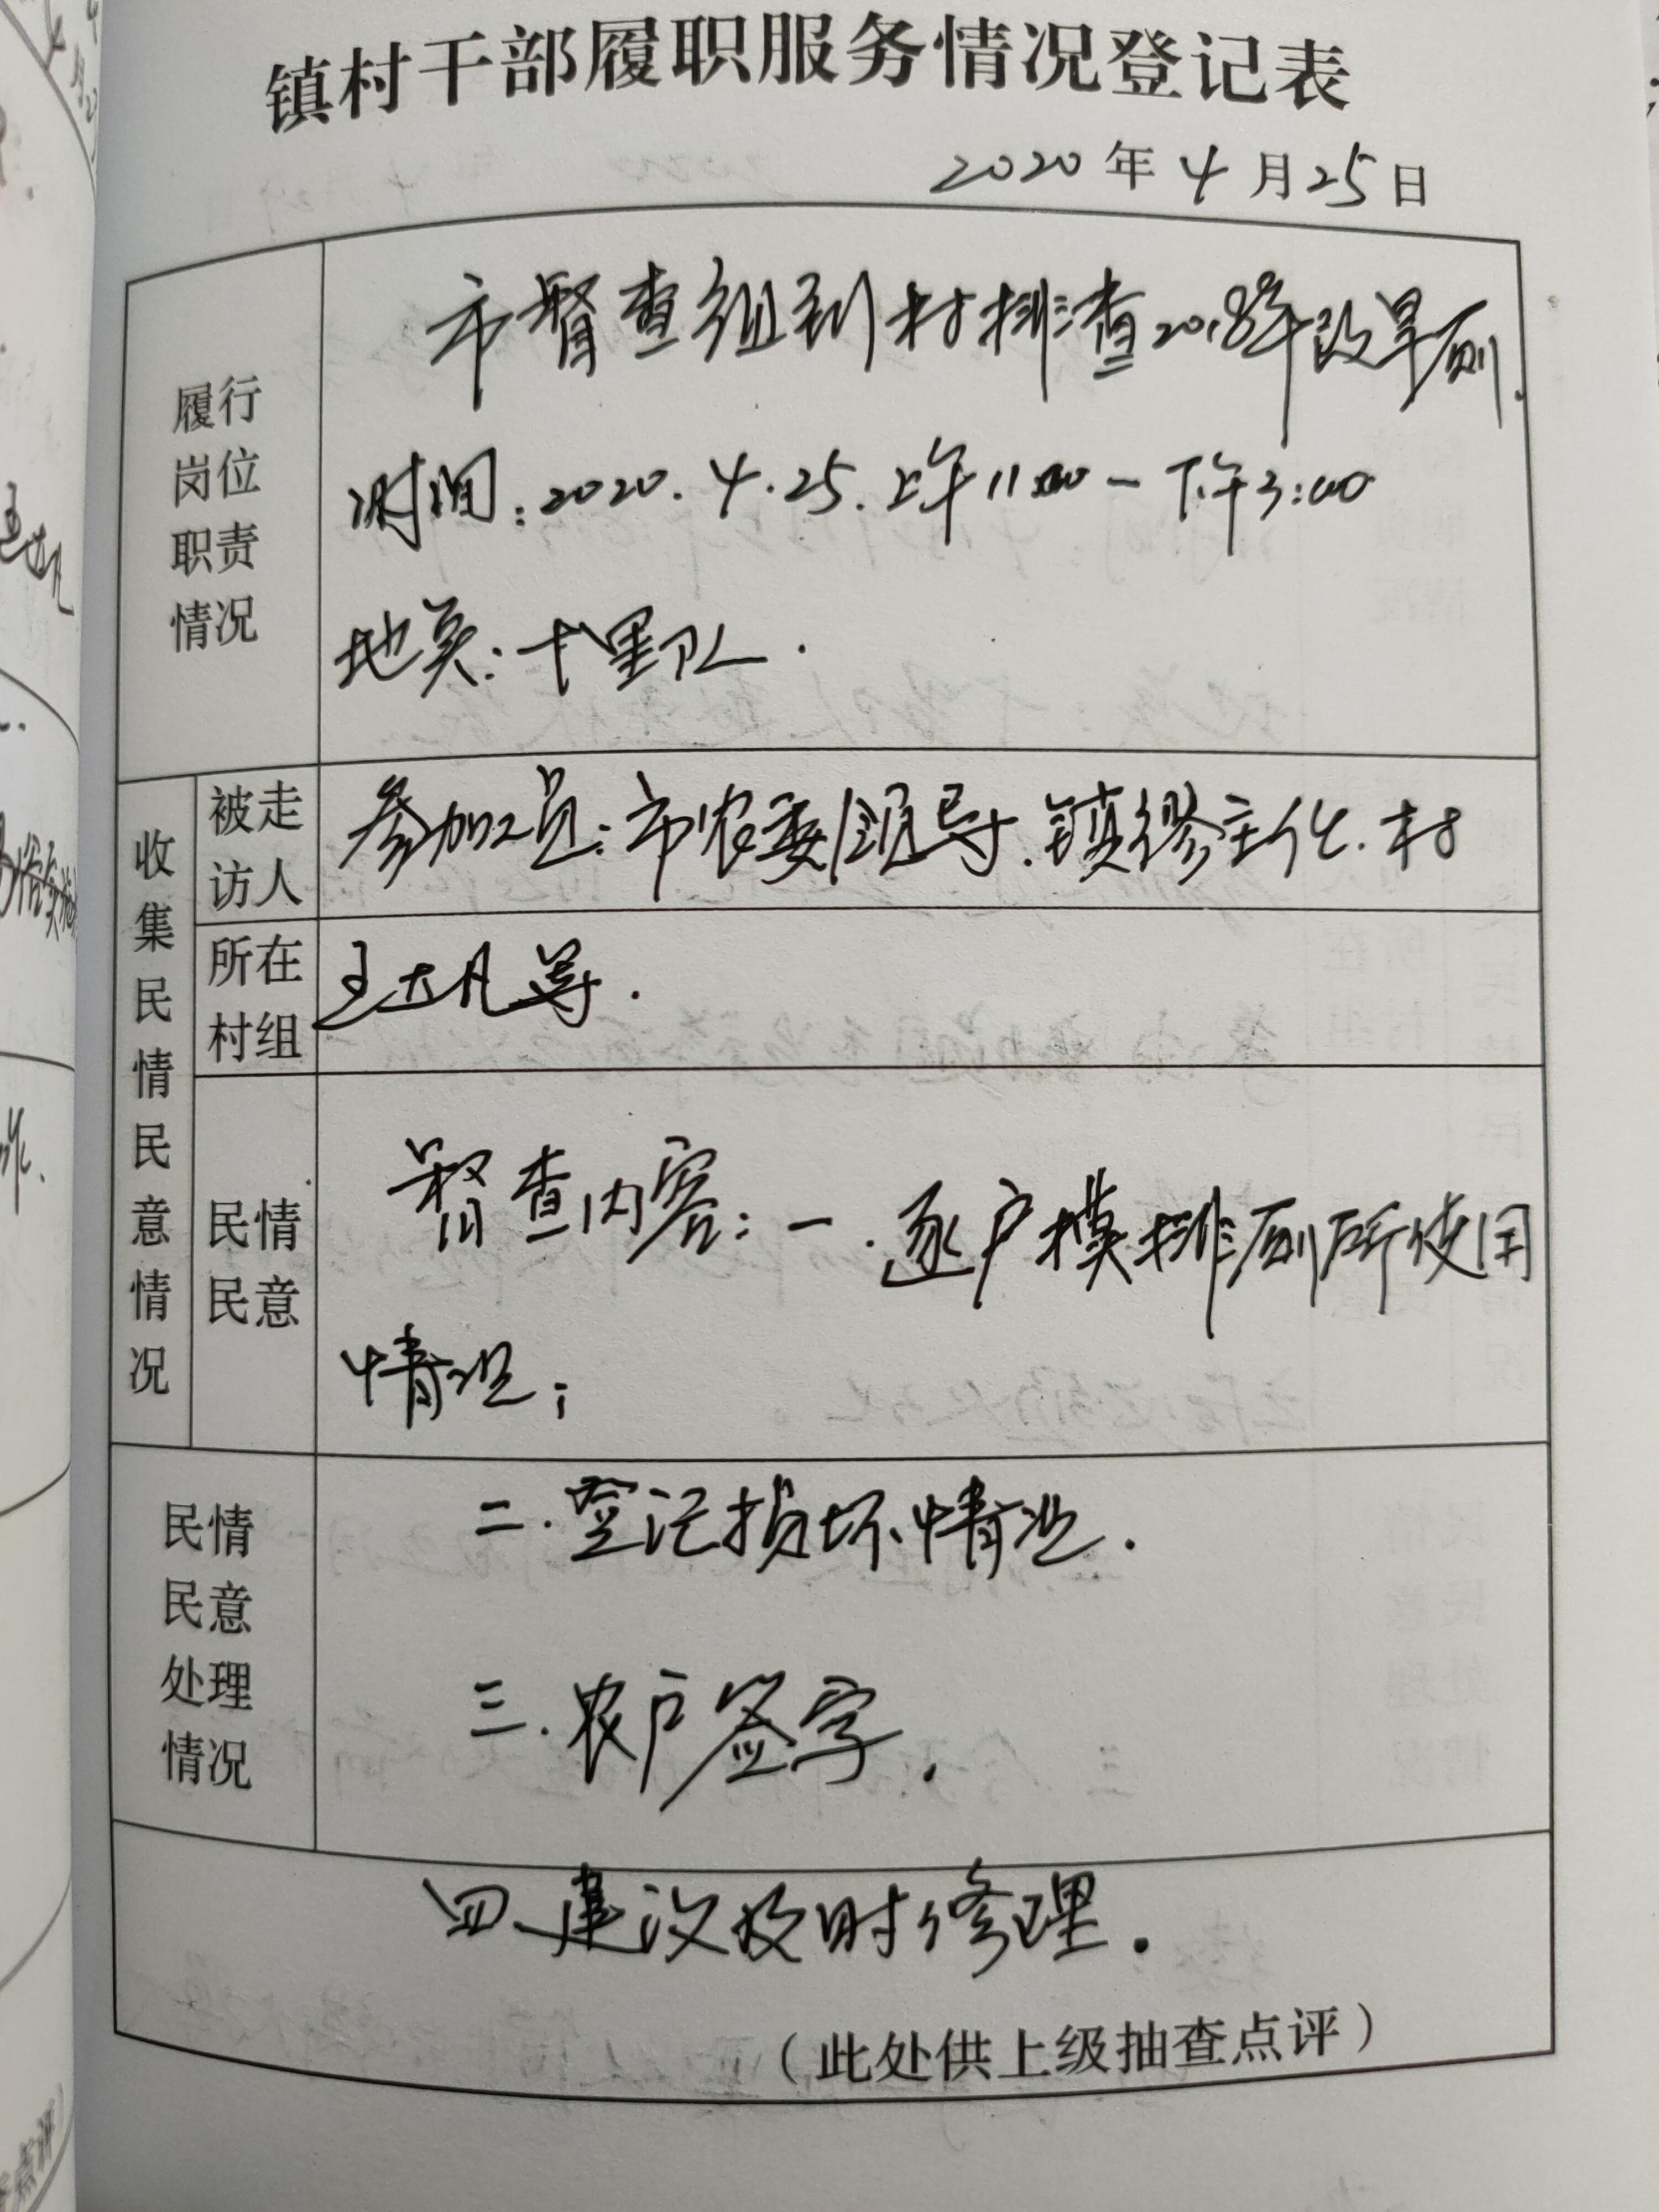 镇村干部履职服务情况登记表
2020年4月25日
履行岗位职责情况
市督查组到村排查2018年改旱厕.
时间:2020.4.25.上午11:00-下午3:00
地点:十里队.
收集民情民意情况
被走访人
参加人员:市农委领导.镇缪主任.村
所在村组
王大凡等.
民情民意
督查内容:一.逐户摸排厕所使用
情况;
民情民意处理情况
二.登记损坏情况.
三.农户签字.
四、建议及时修理.
(此处供上级抽查点评)